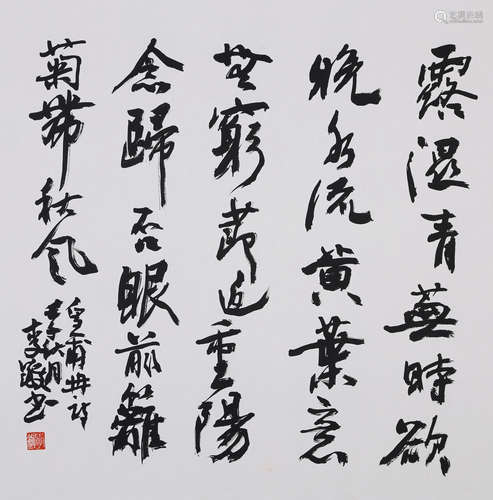 露濕青蕪時欲
晚水流黃葉意
無窮節近重陽
念歸否眼前籬
菊帶秋風
皇甫冉詩
月
李鐸書